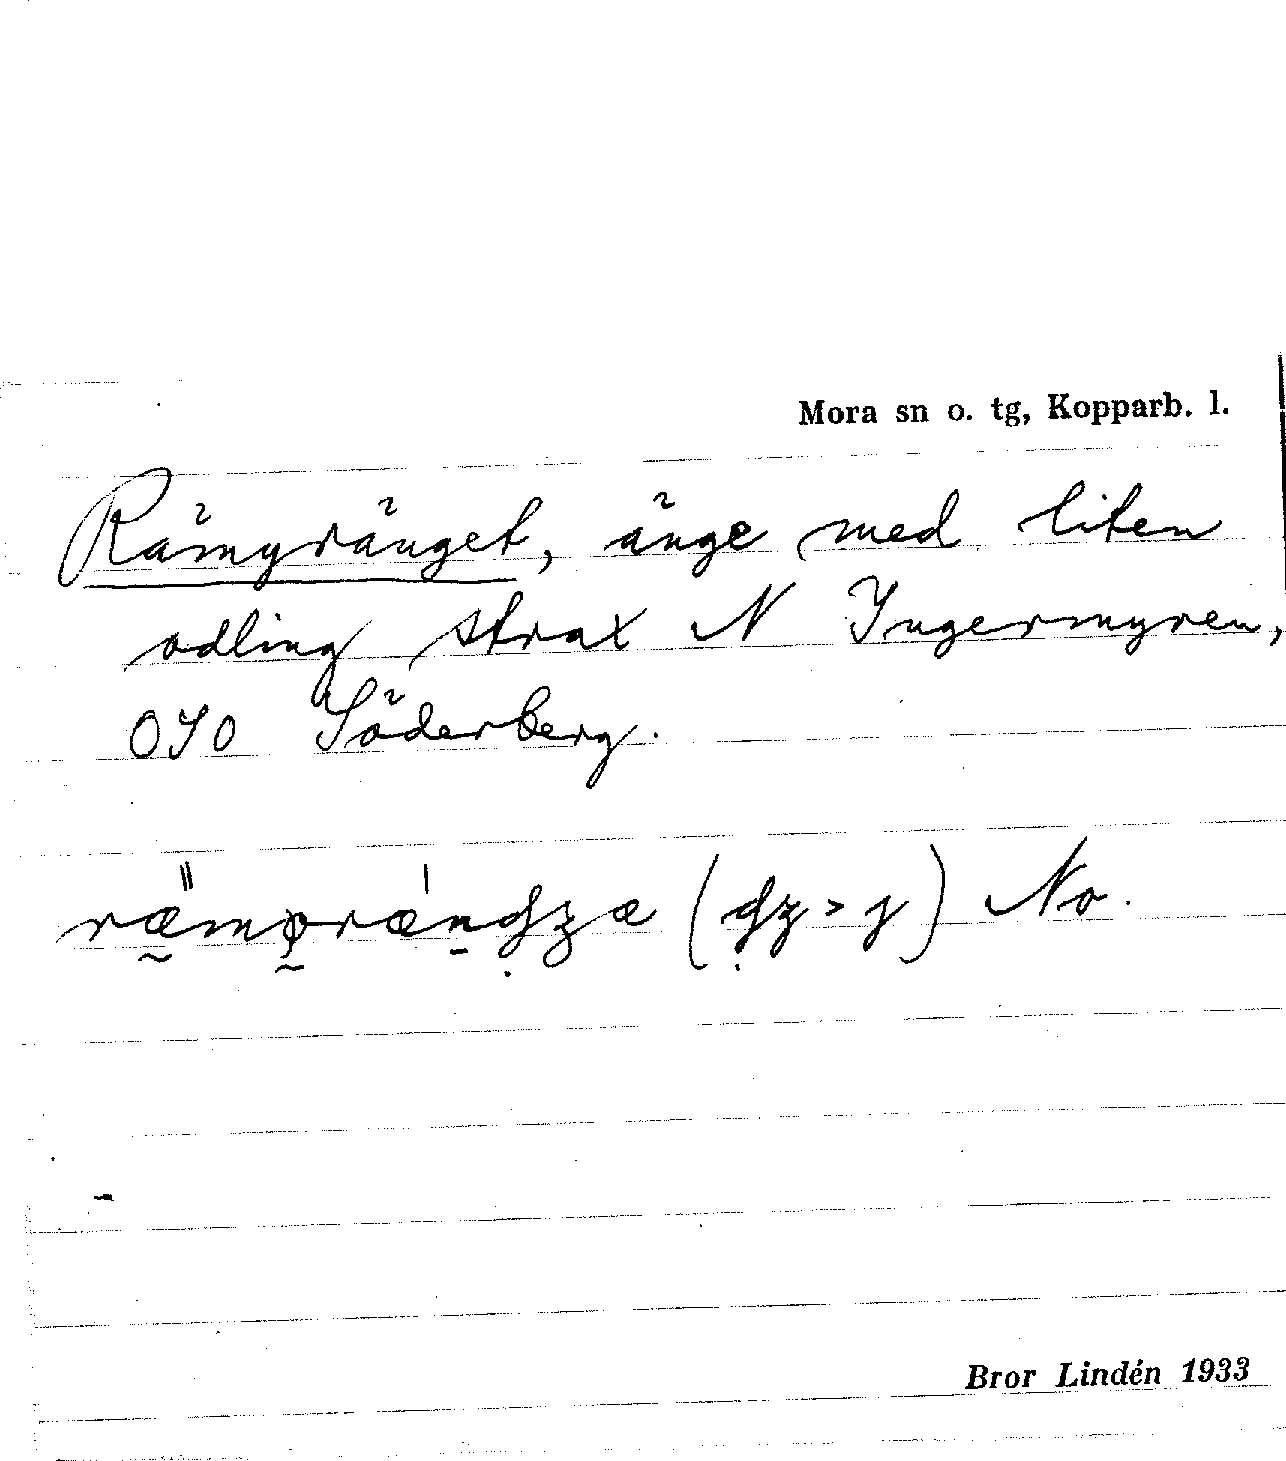 Mora sn o. tg, Kopparb. l.
Rämyränget, änge med liten
odling strax N Ingermyren,
OSO Söderberg.
(ʒ > j) No.
Bror Lindén 1933